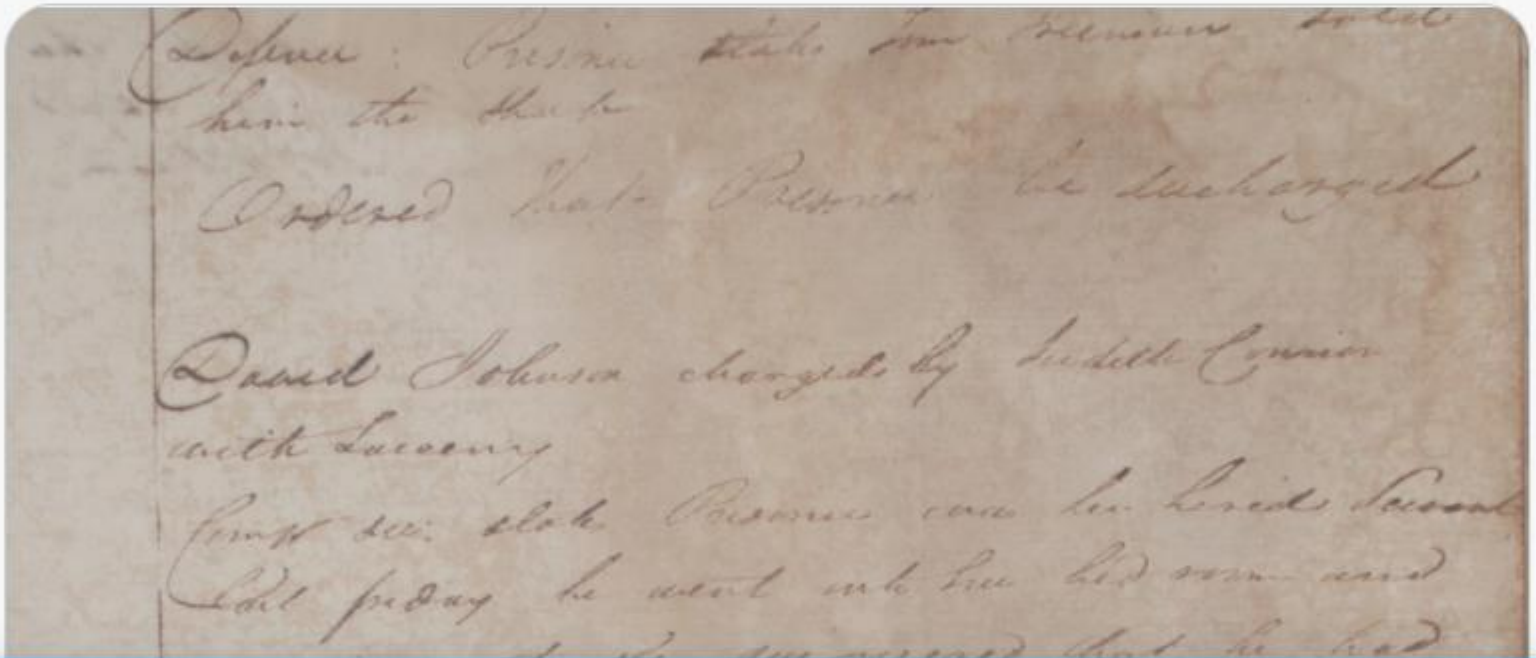 Defence: Prisoner states Tom Freeman sold
him the
Ordered that Prisoner be discharged
David Johnson changed by Judith Connion
with Larceny
Compt Sw: states Prisoner was her hired Servant
last friday he went into her bed room and
discovered that he had